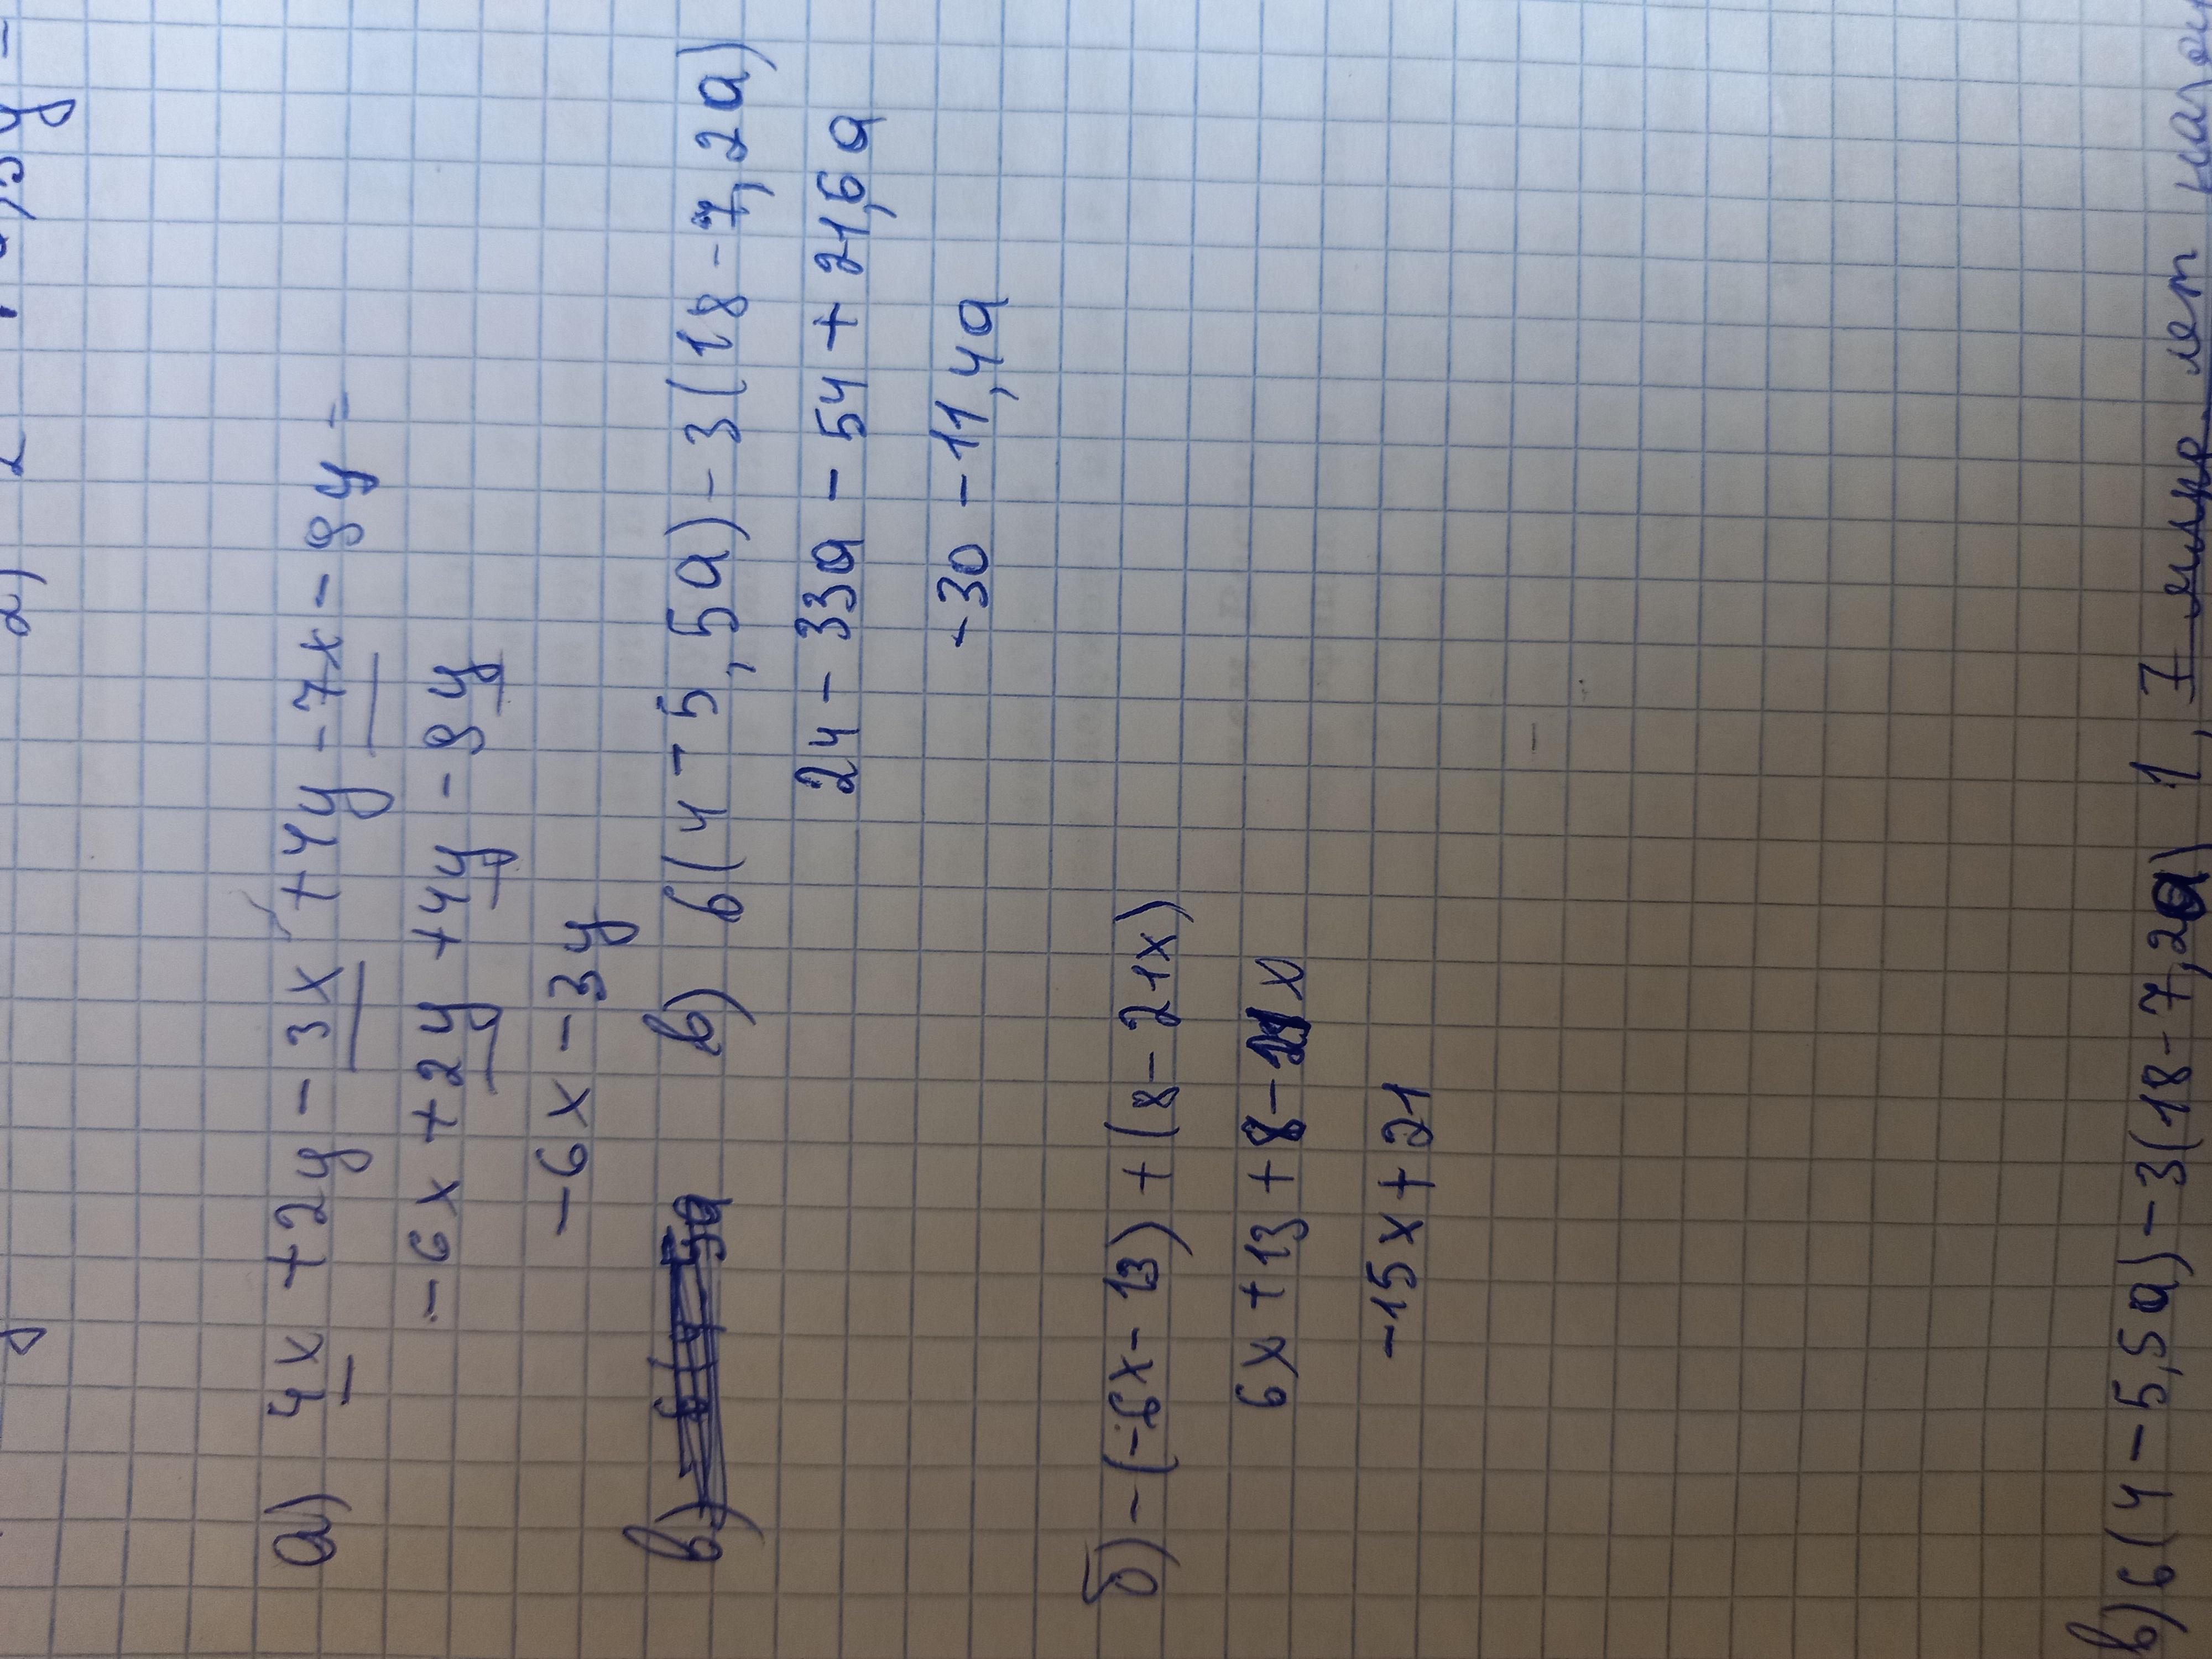 а) 4x + 2y - 3x + 4y - 7x - 9y -
- 6x + 2y + 4y - 9y
- 6x - 3y
в) 6(4 - 5,5a) - 3(18 - 7,2a)
24 - 33a - 54 + 21,6a
- 30 - 11,4a
б) - (-6x - 13) + (8 - 21x)
6x + 13 + 8 - 21x
- 15x + 21
в) 6(4 - 5,5a) - 3(18 - 7,2a) 1,7 лет